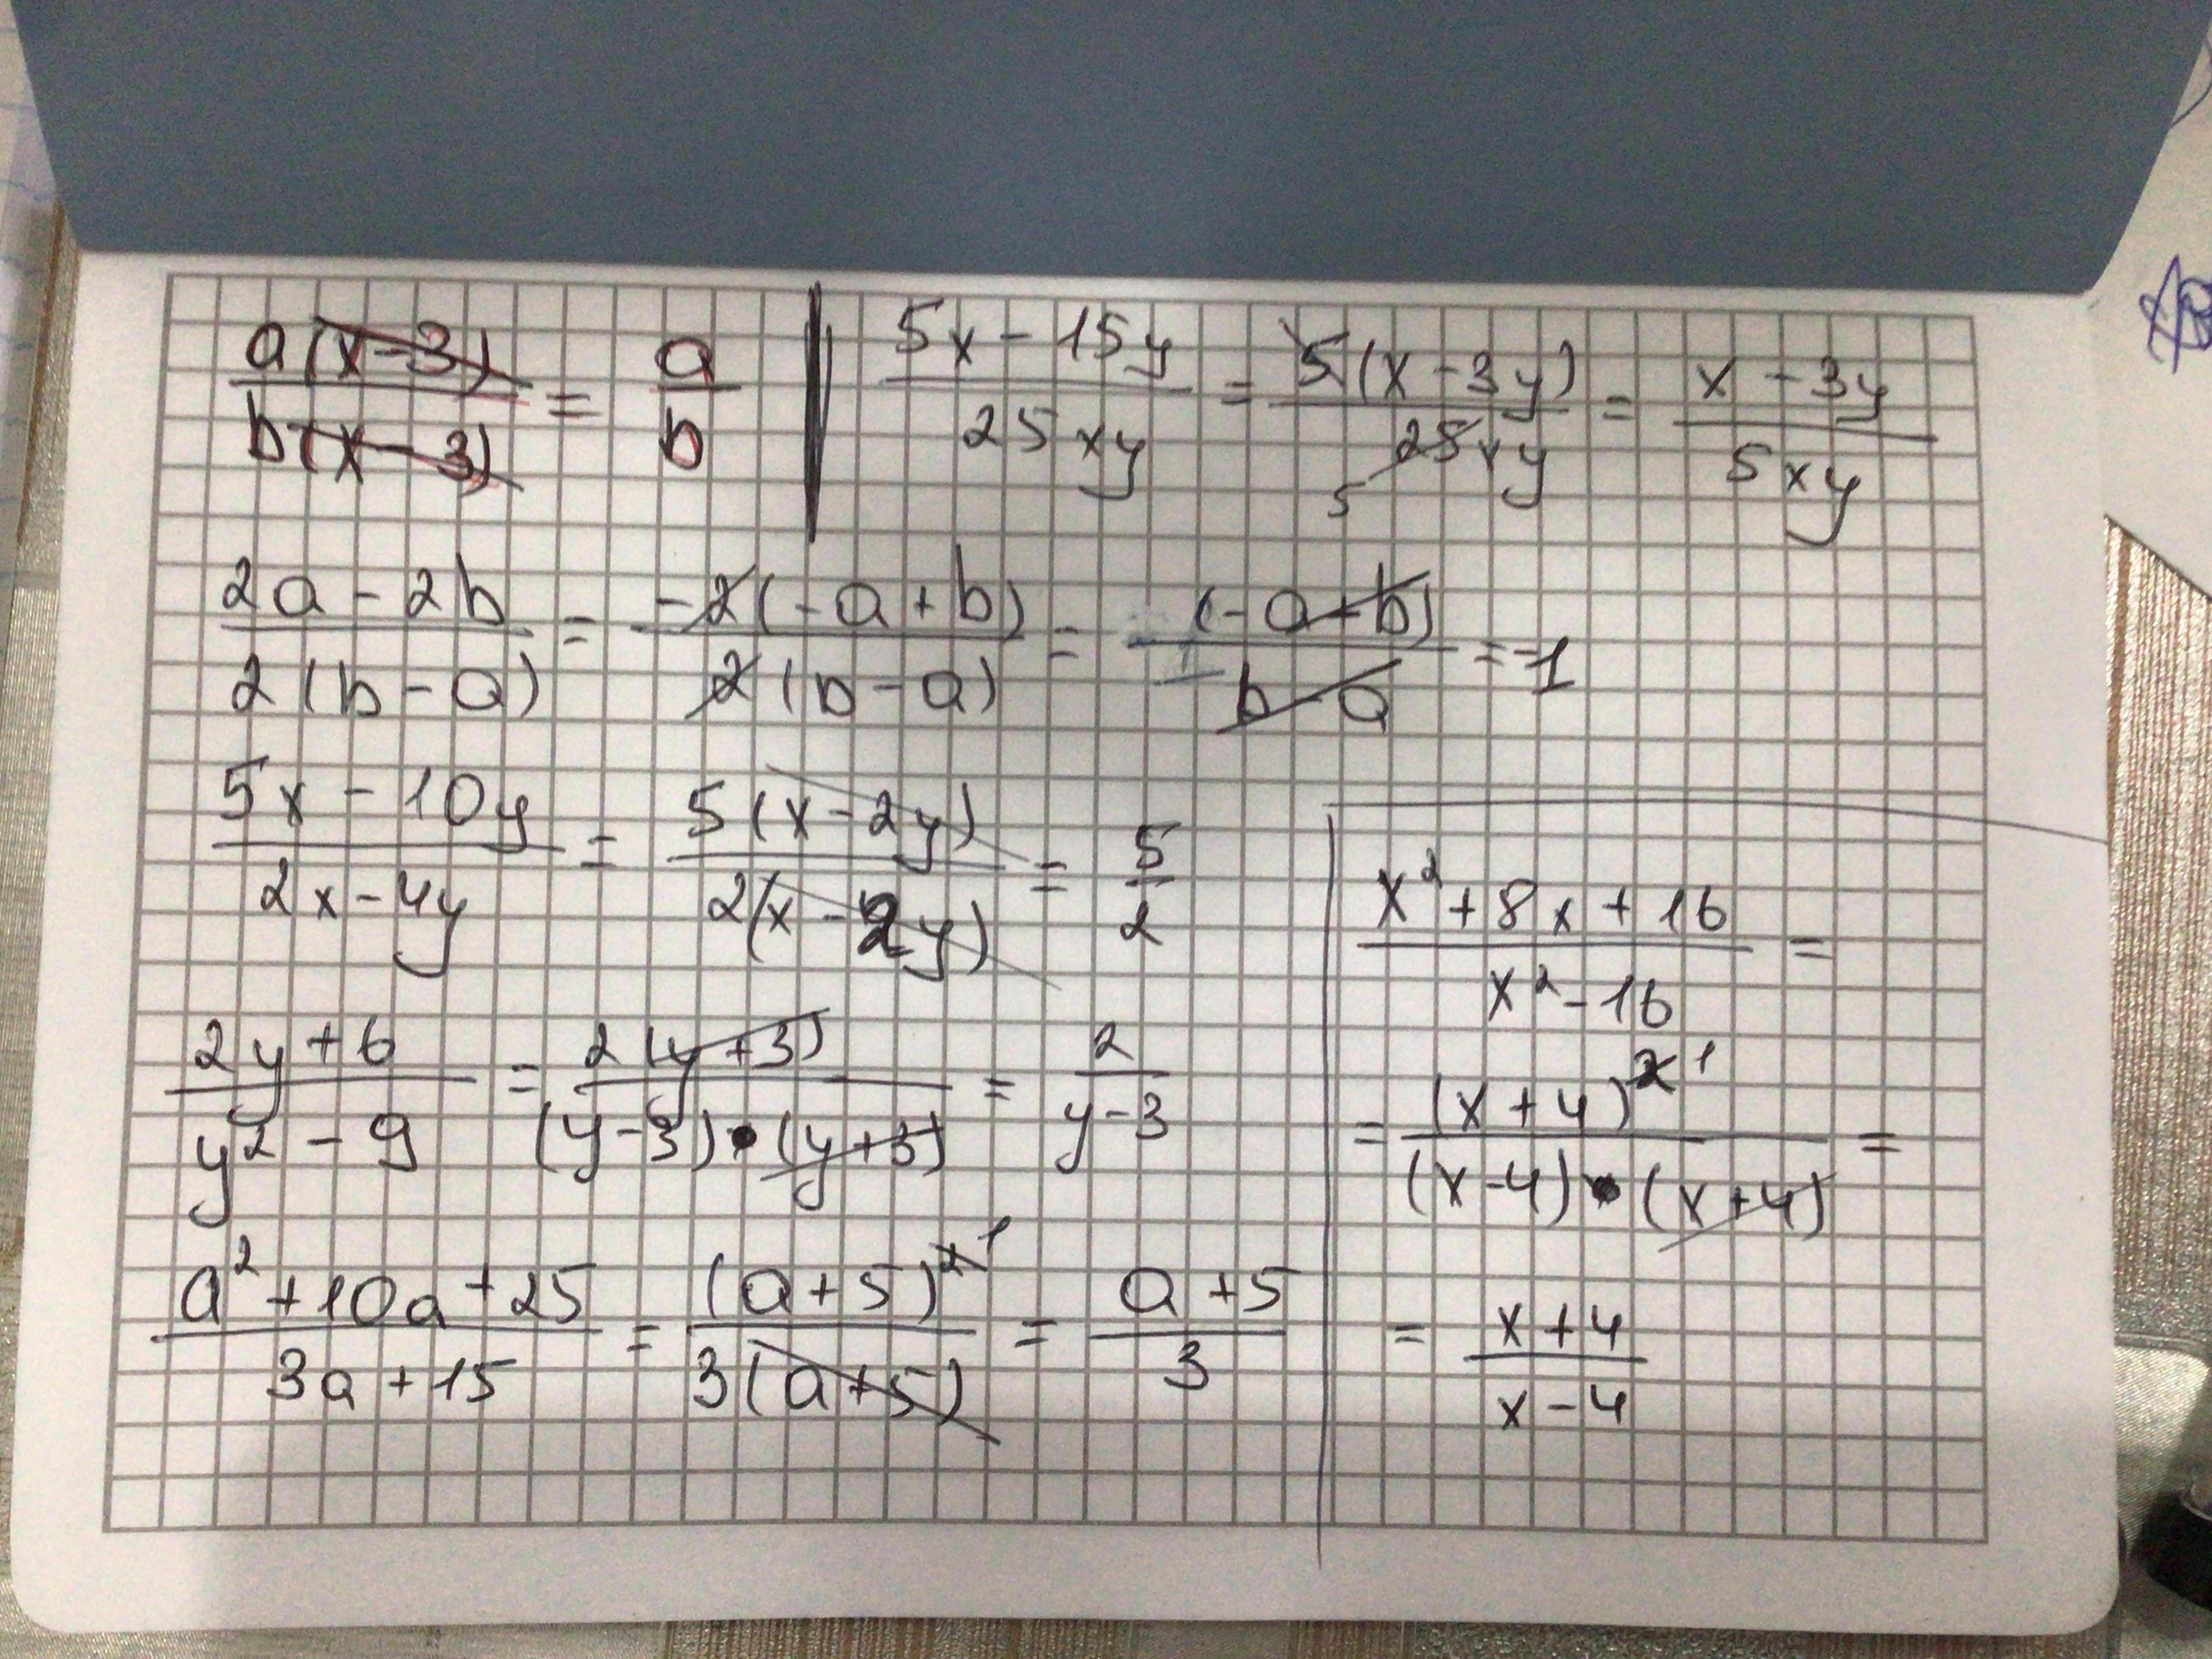 a(x-3)/b(x-3) = a/b
(5x-15y)/25xy = 5(x-3y)/25xy = (x-3y)/5xy
5
(2a-2b)/2(b-a) = -2(-a+b)/2(b-a) = (-a+b)/(b-a) = -1
(5x-10y)/(2x-4y) = 5(x-2y)/2(x-2y) = 5/2
(2y+6)/(y²-9) = 2(y+3)/(y-3)•(y+3) = 2/(y-3)
(a²+10a+25)/(3a+15) = (a+5)² ¹/3(a+5) = (a+5)/3
(x²+8x+16)/(x²-16) =
= (x+4)² ¹/(x-4)•(x+4) =
= (x+4)/(x-4)